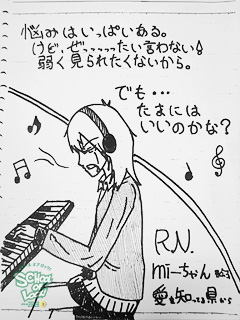 悩みはいっぱいある。
けど、ぜっっっっったい言わない!
弱く見られたくないから。
でも…
たまには
いいのかな?
R.N.
mi-ちゃん
愛を知ってる県から
SCHOOL OF LOCK!